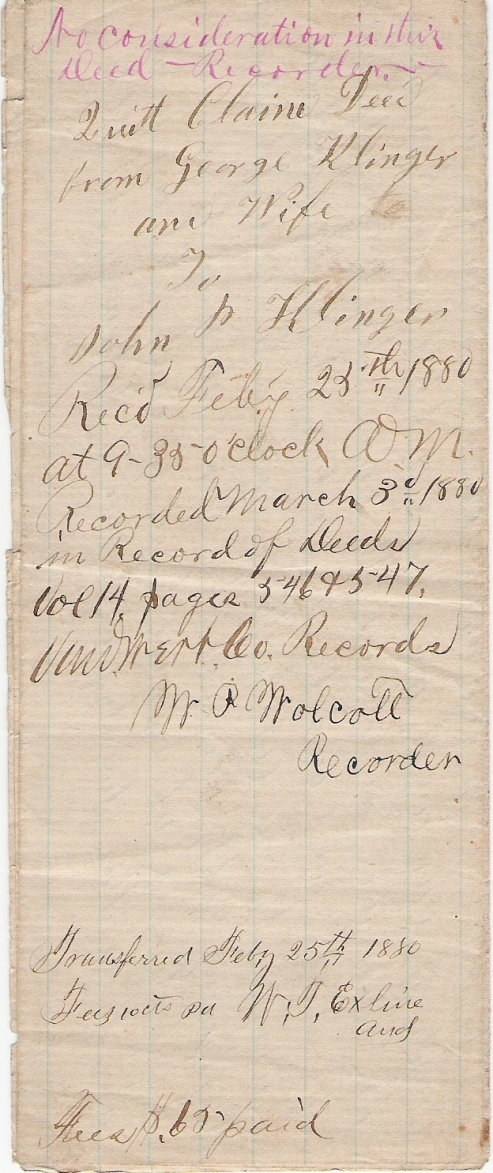 No consideration in this
Deed - Recorder.
Quitt Claim Deed
from George Klinger
and Wife
To
John P Klinger
Rec'd Feby. 25th 1880
at 9-35 o'clock A M.
Recorded March 3d 1880
in Record of Deeds
Vol 14, pages 546 & 547,
Van Wert Co. Records
W P Wolcott
Recorder
Transferred Feby 25th 1880
Fees 10cts pd W. T. Exline
Aud
Fees $.65 paid